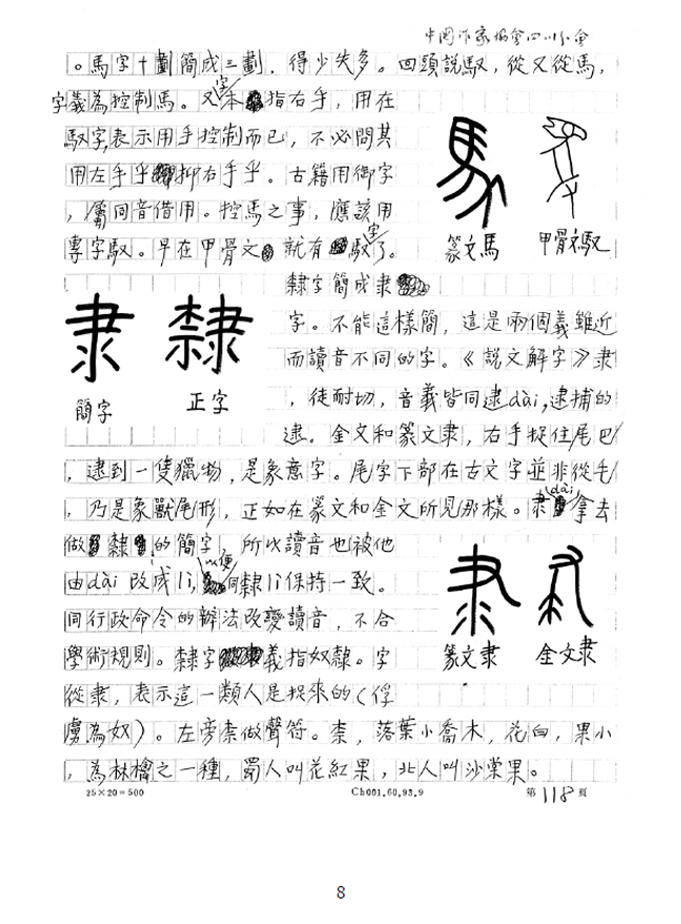 中国作家协会四川分会
。馬字十劃簡成三劃，得少失多。回頭説馭，從又從馬，
字義為控制馬。又字本指右手，用在
馭字，表示用手控制而已，不必問其
用左手乎抑右手乎。古籍用御字
，屬同音借用。控馬之事，應該用
專字馭。早在甲骨文就有馭字了。
馭
篆文馬
甲骨文馭
隸字簡成隶
字。不能這樣簡，這是兩個義雖近
而讀音不同的字。《説文解字》隶
，徒耐切，音義皆同逮dài，逮捕的
逮。金文和篆文隶，右手捉住尾巴
隶 隸
簡字 正字
，逮到一隻獵物，是象意字。尾字下部在古文字並非從毛
，乃是象獸尾形，正如在篆文和金文所見那樣。隶dài拿去
做隸的簡字，所以讀音也被他
由dài改成lì，以便同隸lì保持一致。
用行政命令的辦法改變讀音，不合
學術規則。隸字義指奴隸。字
從隶，表示這一類人是捉來的（俘
虜為奴）。左旁柰做聲符。柰，落葉小喬木，花白，果小
，為林檎之一種，蜀人叫花紅果，北人叫沙棠果。
篆文隶
金文隶
25×20=500
Ch001.60.93.9
第118頁
8